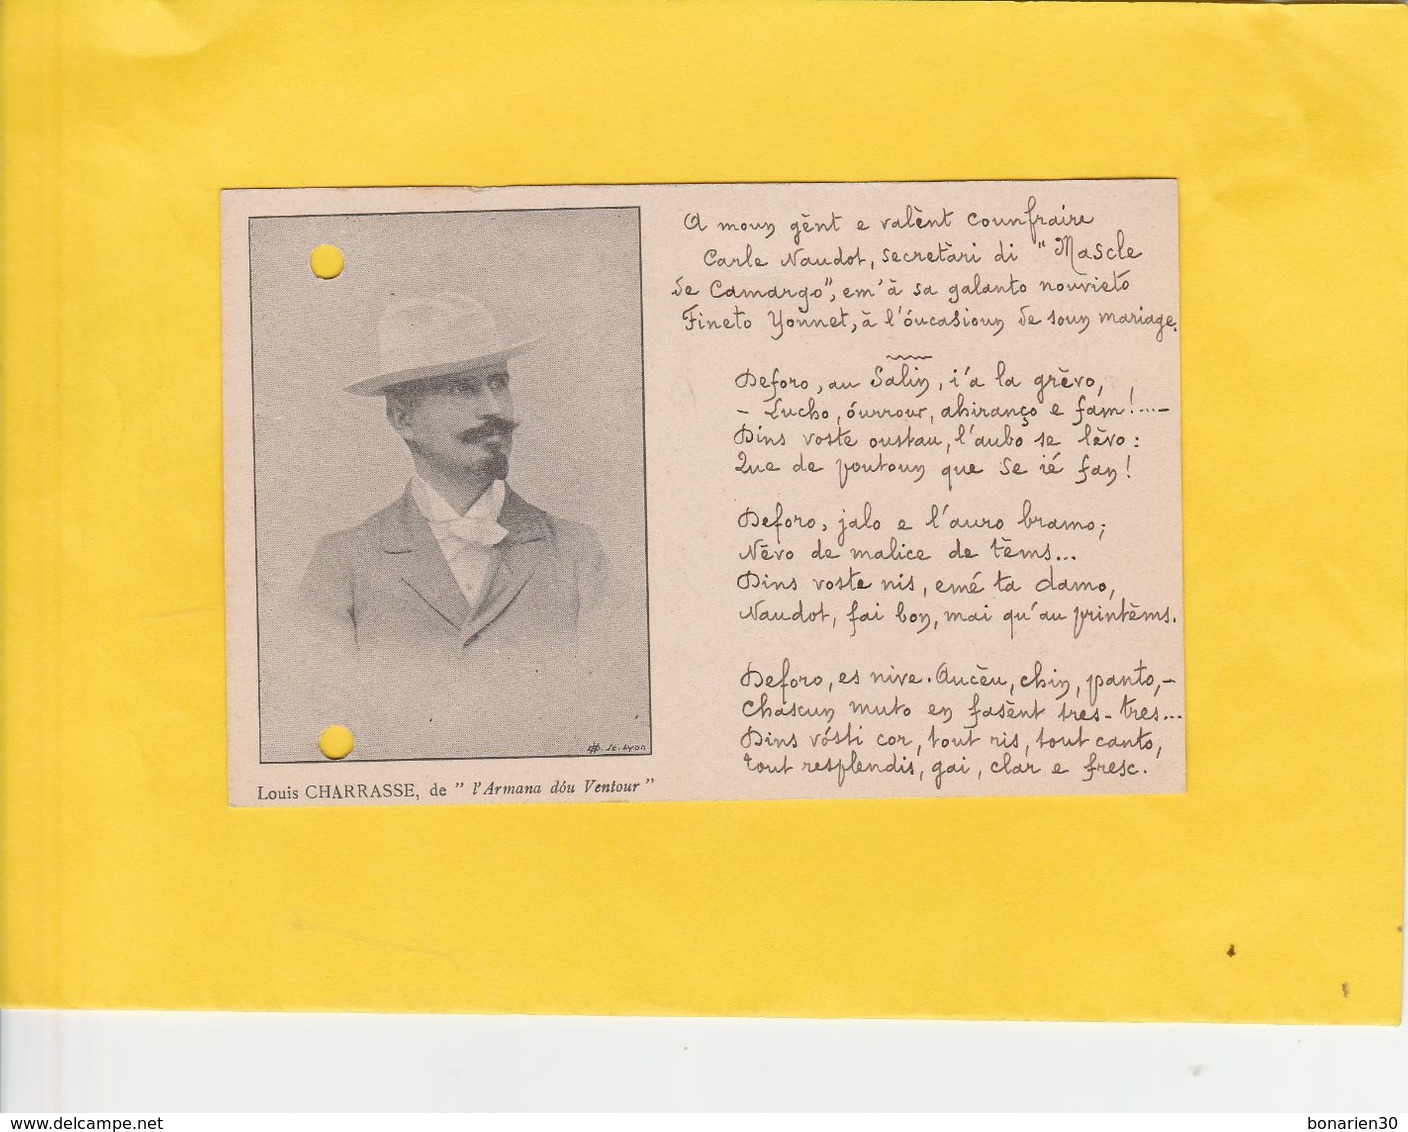 A moun gènt e valènt counfraire
Carle Naudot, secretàri di "Mascle
de Camargo", em'à sa galanto nouvieto
Fineto Yonnet, à l'óucasioun de soun mariage.
Deforo, au Salin, i'a la grèvo,
– Lucho, óurrour, ahiranço e fam!...–
Dins voste oustau, l'aubo se lèvo:
Que de poutoun que se ié fan!
Deforo, jalo e l'auro bramo;
Nèvo de malice de tèms...
Dins voste nis, emé ta damo,
Naudot, fai bon, mai qu'au printèms.
Deforo, es nive. Aucèu, chin, panto,–
Chascun muto en fasènt tres-tres...
Dins vósti cor, tout ris, tout canto,
Tout resplendis, gai, clar e fresc.
Sc. Lyon
Louis CHARRASSE, de "l'Armana dóu Ventour"
www.delcampe.net
bonarien30